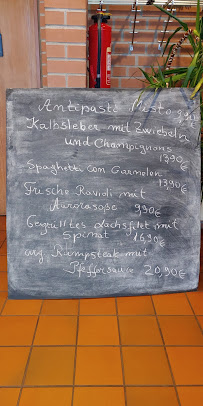 Antipasto Misto 9,90
Kalbsleber mit Zwiebeln
und Champignons
13,90€
Spaghetti con Garnelen
13,90€
Frische Ravioli mit
Aurorasoße 9,90€
Gegrilltes Lachsfilet mit
Spinat 16,90€
arg. Rumpsteak mit
Pfeffersauce 20,90€